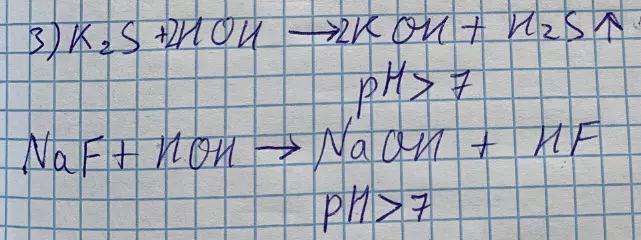 3) K₂S + 2HOH → 2KOH + H₂S↑
pH > 7
NaF + HOH → NaOH + HF
pH > 7